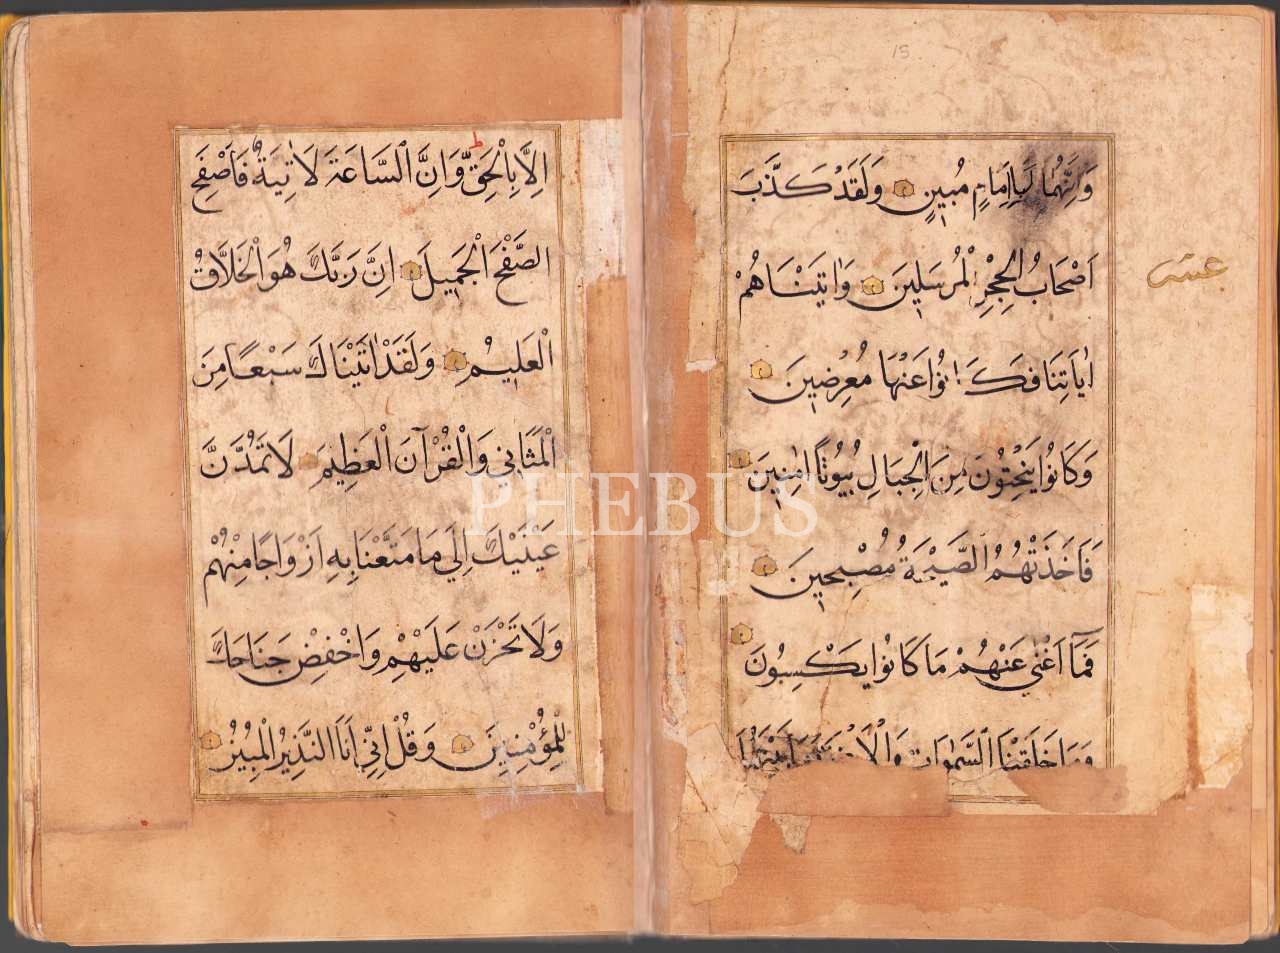 15
وَاِنَّهُمَا لَبِاِمَامٍ مُبِينٍ وَلَقَدْ كَذَّبَ
اَصْحَابُ الْحِجْرِ الْمُرْسَلِينَ وَاٰتَيْنَاهُمْ
اٰيَاتِنَا فَكَانُوا عَنْهَا مُعْرِضِينَ
وَكَانُوا يَنْحِتُونَ مِنَ الْجِبَالِ بُيُوتًا اٰمِنِينَ
فَاَخَذَتْهُمُ الصَّيْحَةُ مُصْبِحِينَ
فَمَآ اَغْنٰي عَنْهُمْ مَا كَانُوا يَكْسِبُونَ
وَمَا خَلَقْنَا السَّمٰوَاتِ وَالْاَرْضَ وَمَا بَيْنَهُمَا
عشر
اِلَّا بِالْحَقِّ وَاِنَّ السَّاعَةَ لَاٰتِيَةٌ فَاَصْفَحِ
الصَّفْحَ الْجَمِيلَ اِنَّ رَبَّكَ هُوَ الْخَلَّاقُ
الْعَلِيمُ وَلَقَدْ اٰتَيْنَاكَ سَبْعًا مِنَ
الْمَثَانِي وَالْقُرْآنَ الْعَظِيمَ لَا تَمُدَّنَّ
عَيْنَيْكَ اِلَي مَا مَتَّعْنَا بِهِ اَزْوَاجًا مِنْهُمْ
وَلَا تَحْزَنْ عَلَيْهِمْ وَاخْفِضْ جَنَاحَكَ
لِلْمُؤْمِنِينَ وَقُلْ اِنِّي اَنَا النَّذِيرُ الْمُبِينُ
PHEBUS